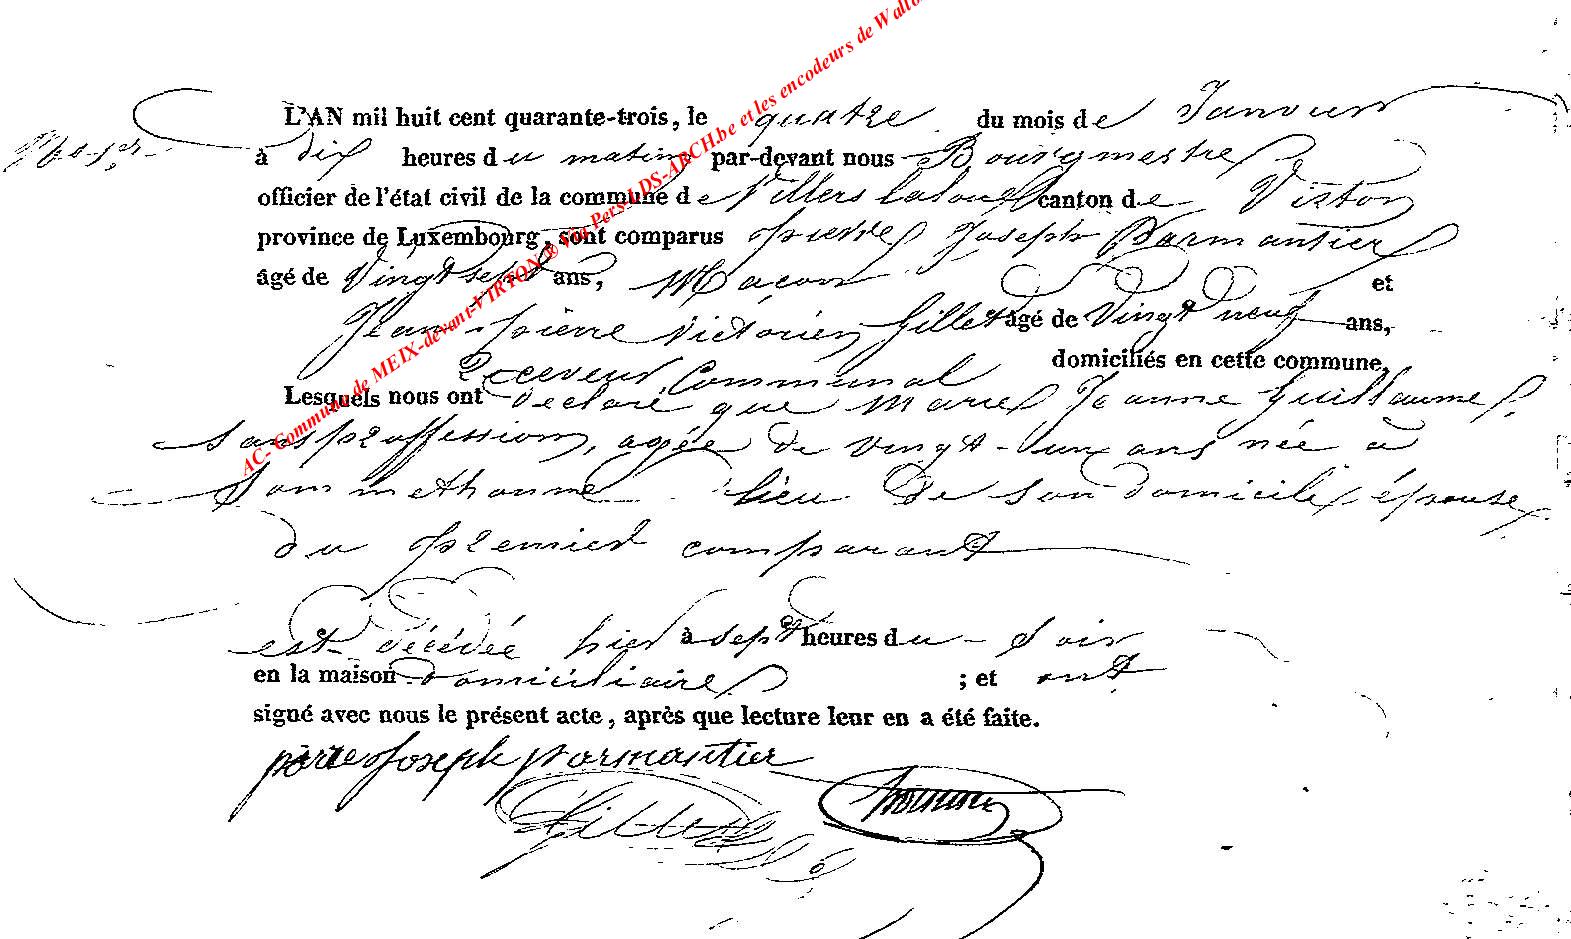 L'AN mil huit cent quarante-trois, le quatre du mois de Janvier
à dix heures du matin par-devant nous Bourgmestre
officier de l'état civil de la commune de Villers la loue canton de Virton
province de Luxembourg, sont comparus pierre Joseph Parmantier
âgé de Vingt sept ans, Maçon et
Jean pierre Victorien Gillet âgé de Vingt neuf ans,
Receveur Communal domiciliés en cette commune.
Lesquels nous ont declaré que Marie Jeanne Guillaume
sans proffession, agée de vingt ans née à
Sommethonne lieu de son domicile épouse
du premier comparant
est décédée hier à sept heures du Soir
en la maison domiciliaire ; et ont
signé avec nous le présent acte, après que lecture leur en a été faite.
pierre Joseph parmantier
Gillet
AC- Commune de MEIX-devant-VIRTON ® Via Pers-LDS-ARCH.be et les encodeurs de